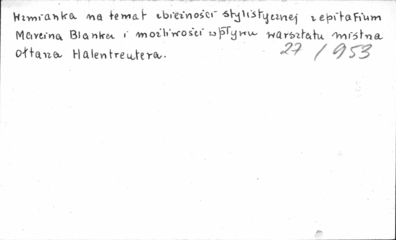 Wzmianka na temat zbieżności stylistycznej z epitafium
Marcina Blanka i możliwości wpływu warsztatu mistrza
ołtarza Halentreutera.
27 / 953